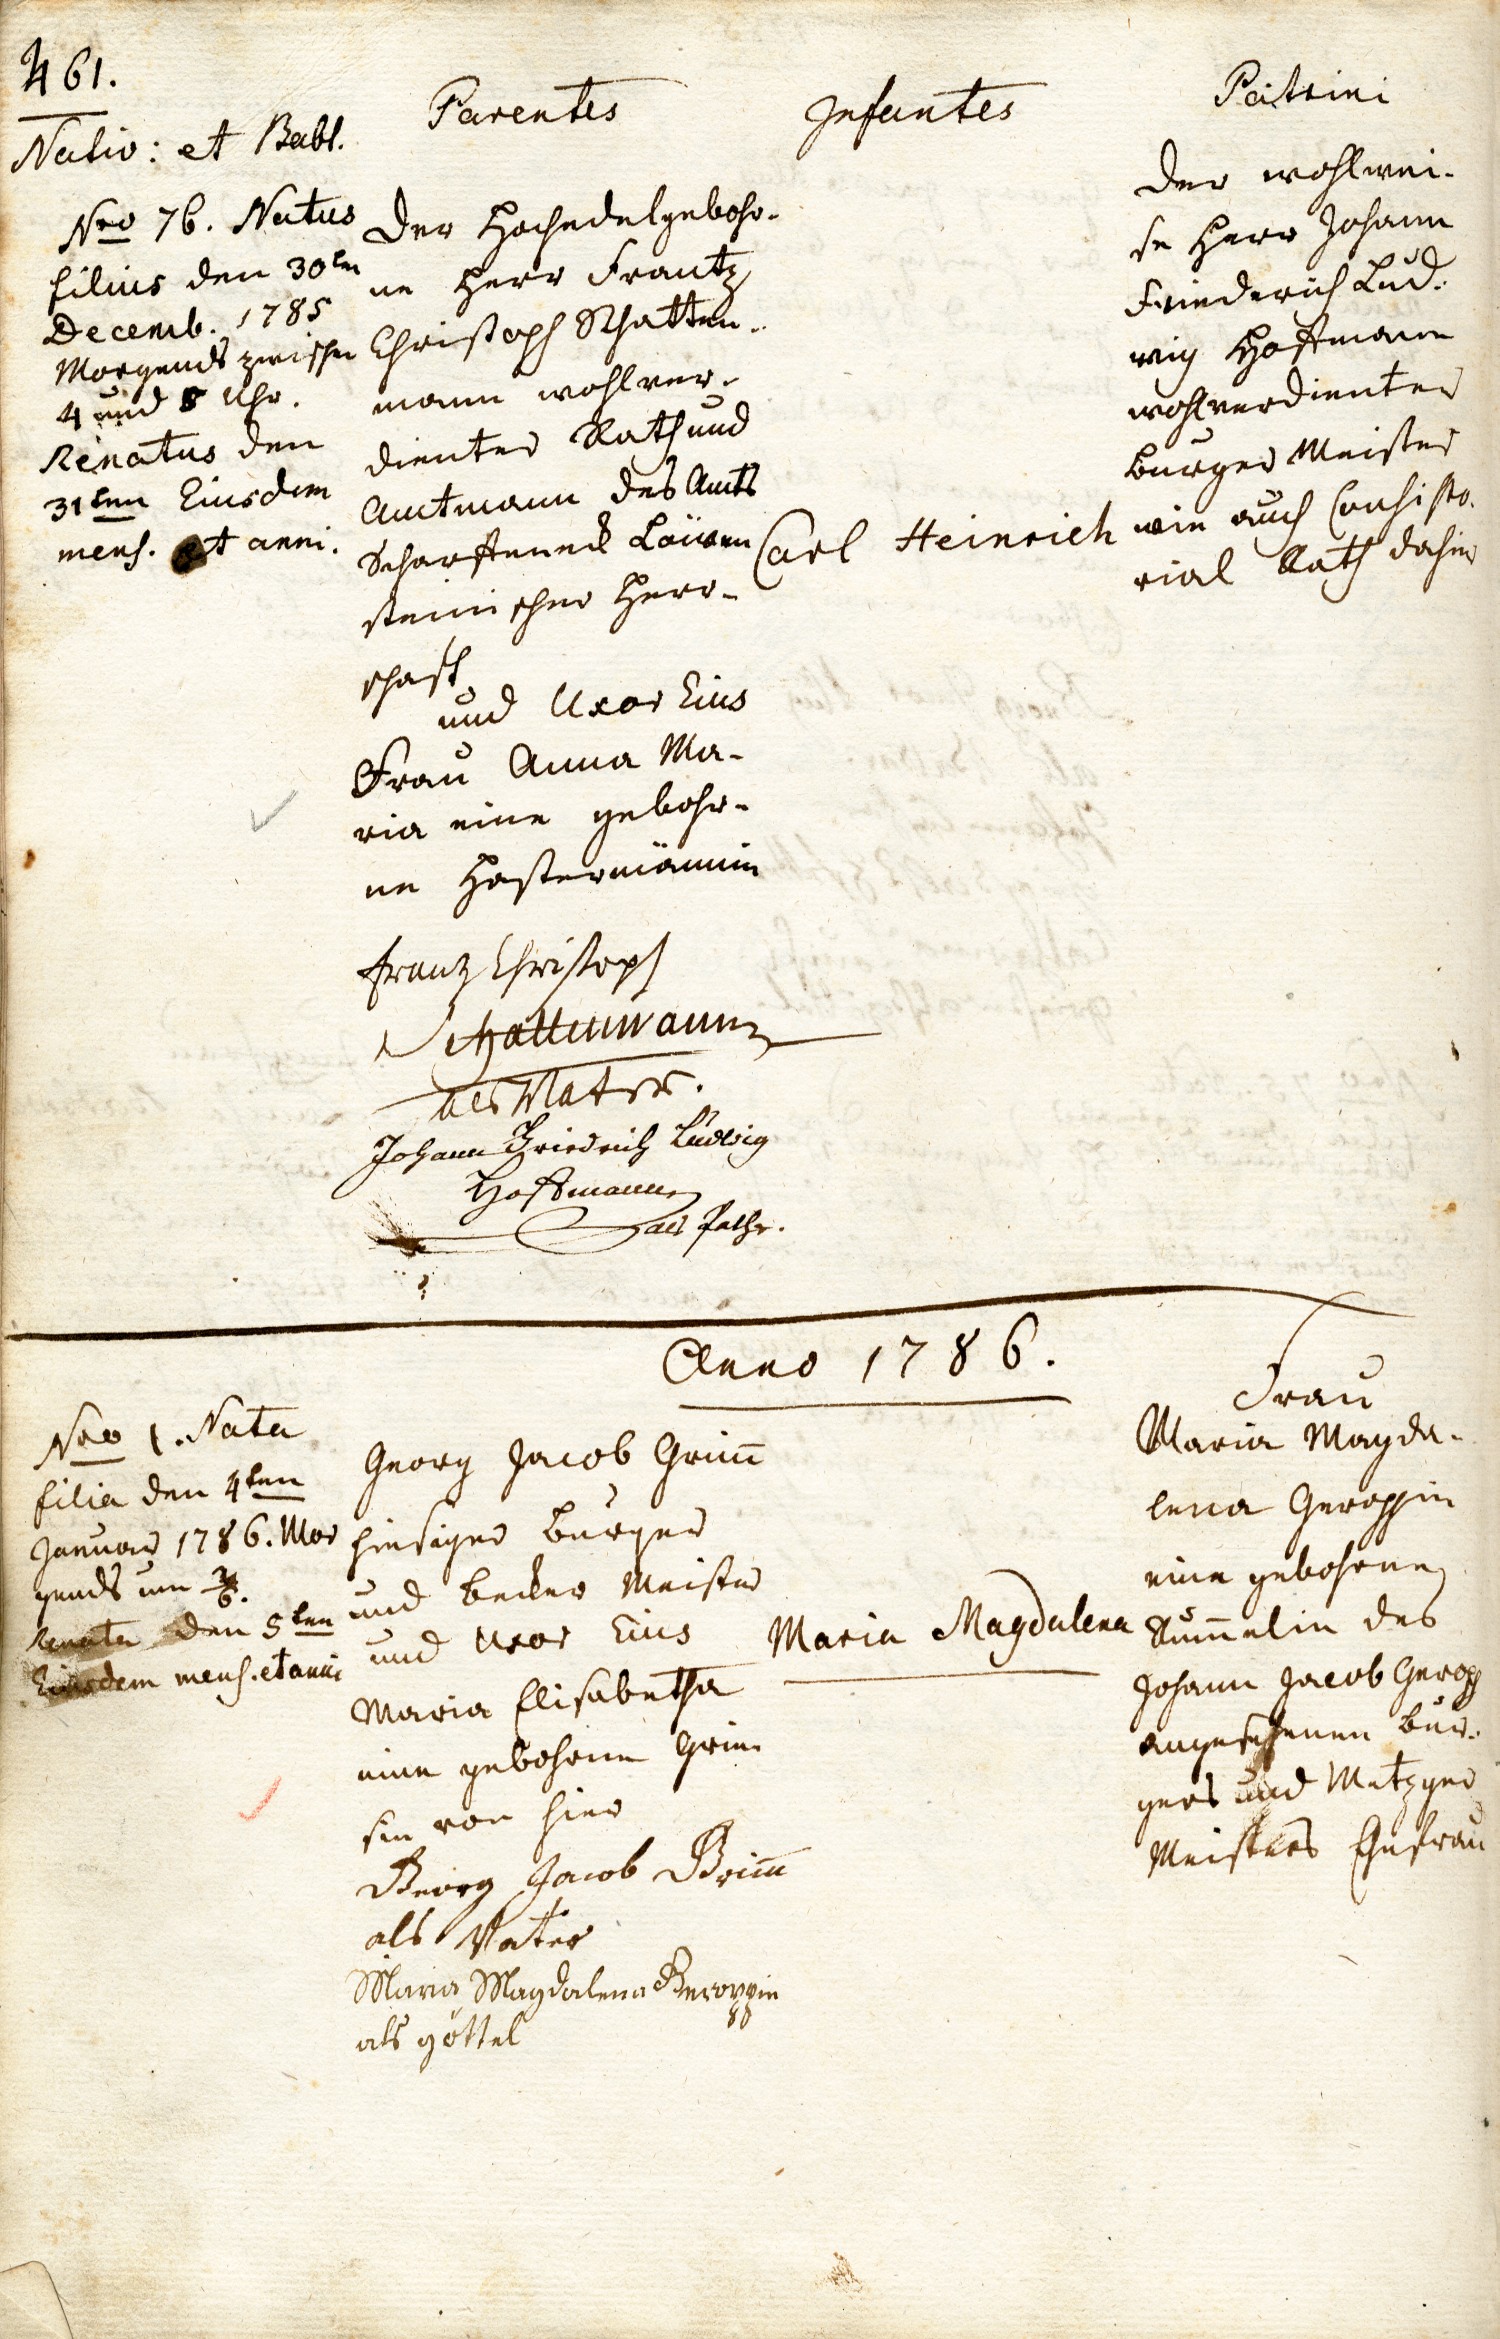 461.
Nativ: et Babt.
Parentes
Infantes
Patrini
Nro 76. Natus
filius den 30ten
Decemb. 1785
Morgends zwischen
4 und 5 Uhr.
Renatus den
31ten Eiusdem
mens. et anni.
Der Hochedelgebohr-
ne Herr Frantz
Christoph Schatten-
mann wohlver-
dienter Rath und
Amtmann des Amts
Scharffeneck Löwen
steinischer Herr-
schaft
und Uxor Eius
Frau Anna Ma-
ria eine gebohr-
ne
Franz Christoph
Schattenmann
als Vater.
Johann Friedrich Ludwig
Hoffmann
als Pathe.
Carl Heinrich
Der wohlwei-
se Herr Johann
Friederich Lud-
wig Hoffmann
wohlverdienter
Burger Meister
wie auch Consisto-
rial Rath dahier
Anno 1786.
Nro 1. Nata
filia den 4ten
Januar 1786. Mor
gends um
Renata den 5ten
Eiusdem mens. et anni
Georg Jacob Grim̄
hiesiger Burger
und Becker Meister
und Uxor Eius
Maria Elisabetha
eine gebohrne Grie-
sin von hier
Georg Jacob Grim̄
als Vater
Maria Magdalena Geroppin
als göttel
Maria Magdalena
Frau
Maria Magda-
lena Geroppin
eine gebohrne
Rum̄elin des
Johann Jacob Geropp
angesehenen Bur-
gers und Metzger
Meisters Ehefrau